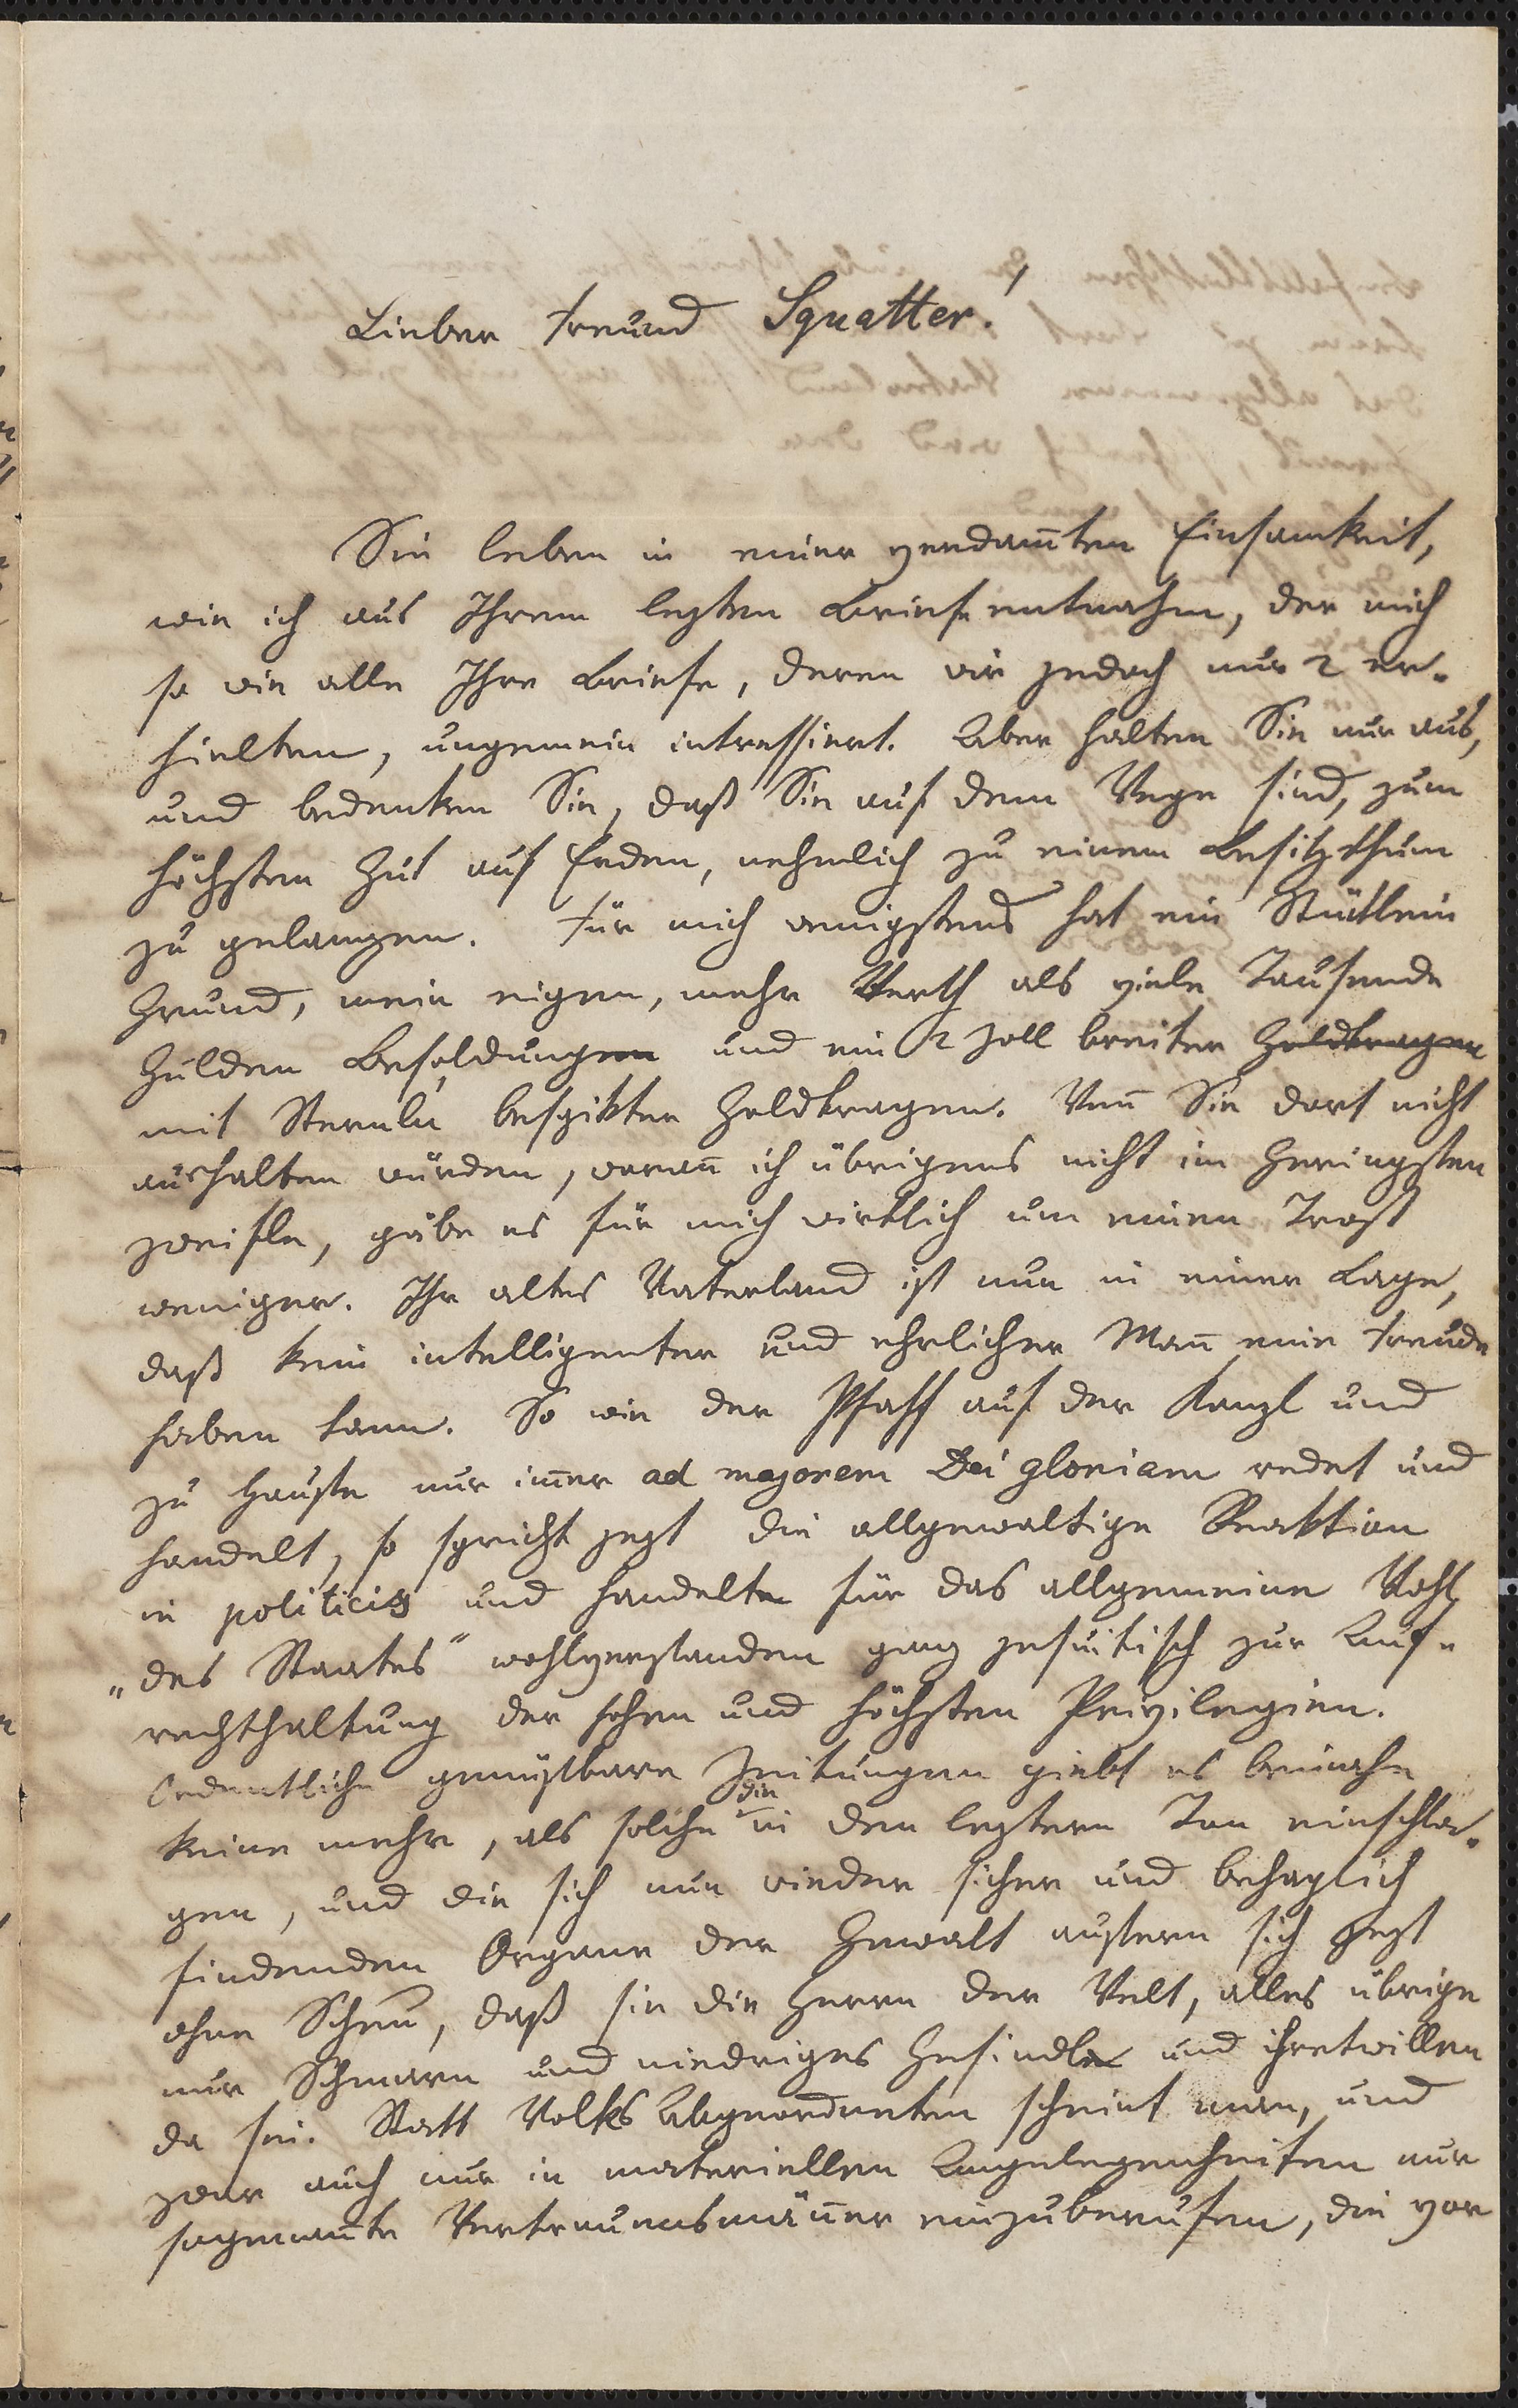 Lieber Freund Squatter!
Sie leben in einer verdam̄ten Einsamkeit,
wie ich aus Ihrem lezten Briefe entnahm, der mich
so wie alle Ihre Briefe, deren wir jedoch nur 2 er-
hielten, ungemein intressiert. Aber halten Sie nur aus,
und bedenken Sie, daß Sie auf dem Wege sind, zum
höchsten Gut auf Erden, nehmlich zu einem Besitzthum
zu gelangen. Für mich wenigstens hat ein Stücklein
Grund, mein eigen, mehr Werth als viele Tausende
Gulden Besoldungen und ein 2 Zoll breiter Goldkragen
mit Sternln bespikter Goldkragen. Wen̄ Sie dort nicht
aushalten würden, woran̄ ich übrigens nicht im Geringsten
zweifle, gäbe es für mich wirklich um einen Trost
weniger. Ihr altes Vaterland ist nun in einer Lage,
daß kein intelligenter und ehrlicher Man̄ eine Freude
haben kann. So wie der Pfaff auf der Kanzl und
zu Hauße nur im̄er ad majorem Dei gloriam redet und
handelt, so spricht jezt die allgewaltige Reaktion
in politicis und handelte für das allgemeine Wohl
„des Staates" wohlverstanden ganz jesuitisch zur Auf-
rechthaltung der hohen und höchsten Privilegien.
Ordentliche genüßbare Zeitungen giebt es beinahe
keine mehr, als solche die in den leztern Ton einschla-
gen, und die sich nun wieder sicher und behaglich
findenden Organe der Gewalt außern sich jezt
ohne Scheu, daß sie die Herrn der Welt, alles übrige
nur Schmarn und niedriges Gesindle und ihretwillen
da sei. Statt Volks Abgeordneten scheint man, und
zwar auch nur in materiellen Angelegenheiten nur
sogenan̄te Vertrauensmän̄er einzuberufen, die vor